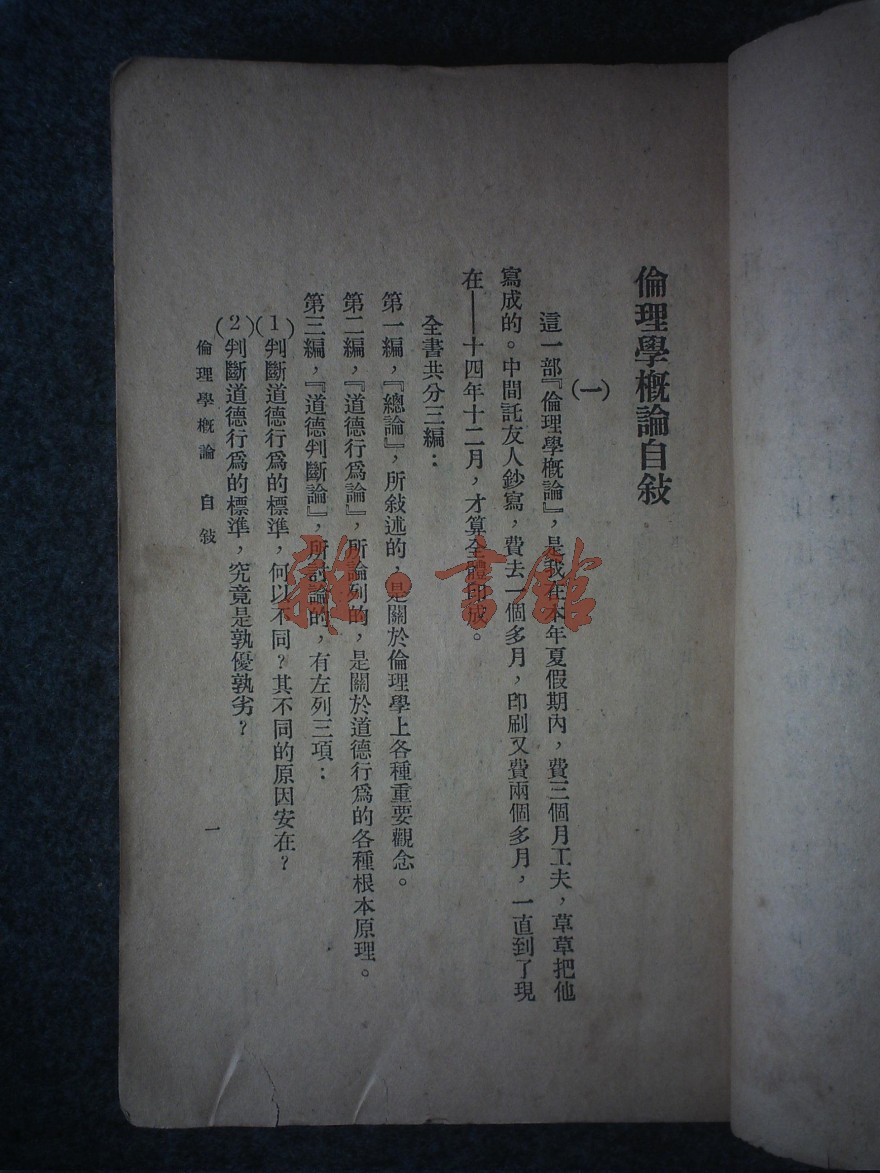 倫理學概論自敍
(一)
這一部『倫理學概論』，是我在本年夏假期內，費三個月工夫，草草把他
寫成的。中間託友人鈔寫，費去一個多月，印刷又費兩個多月，一直到了現
在——十四年十二月，才算全體印成。
全書共分三編：
第一編，『總論』，所敍述的，是關於倫理學上各種重要觀念。
第二編，『道德行爲論』，所論列的，是關於道德行爲的各種根本原理。
第三編，『道德判斷論』，所討論的，有左列三項：
(1)判斷道德行爲的標準，何以不同？其不同的原因安在？
(2)判斷道德行爲的標準，究竟是孰優孰劣？
倫理學概論 自敍
一
雜·書館